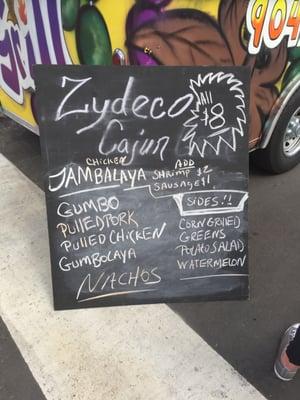 904
Zydeco
Cajun
All
$8
CHICKEN
JAMBALAYA
ADD
SHRIMP $2
SAUSAGE $1
GUMBO
PULLED PORK
PULLED CHICKEN
GUMBOLAYA
NACHOS
SIDES!!
CORN GRILLED
GREENS
POTATO SALAD
WATERMELON